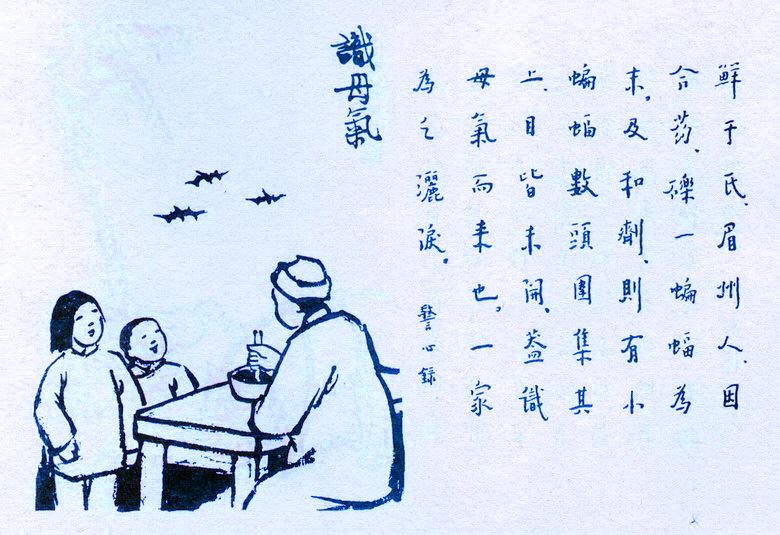 鮮于氏、眉州人、因
合药、磔一蝙蝠為
末。及和劑、則有小
蝙蝠數頭圍集其
上、目皆未開。蓋識
母氣而来也。一家
為之灑淚。 警心錄
識母氣